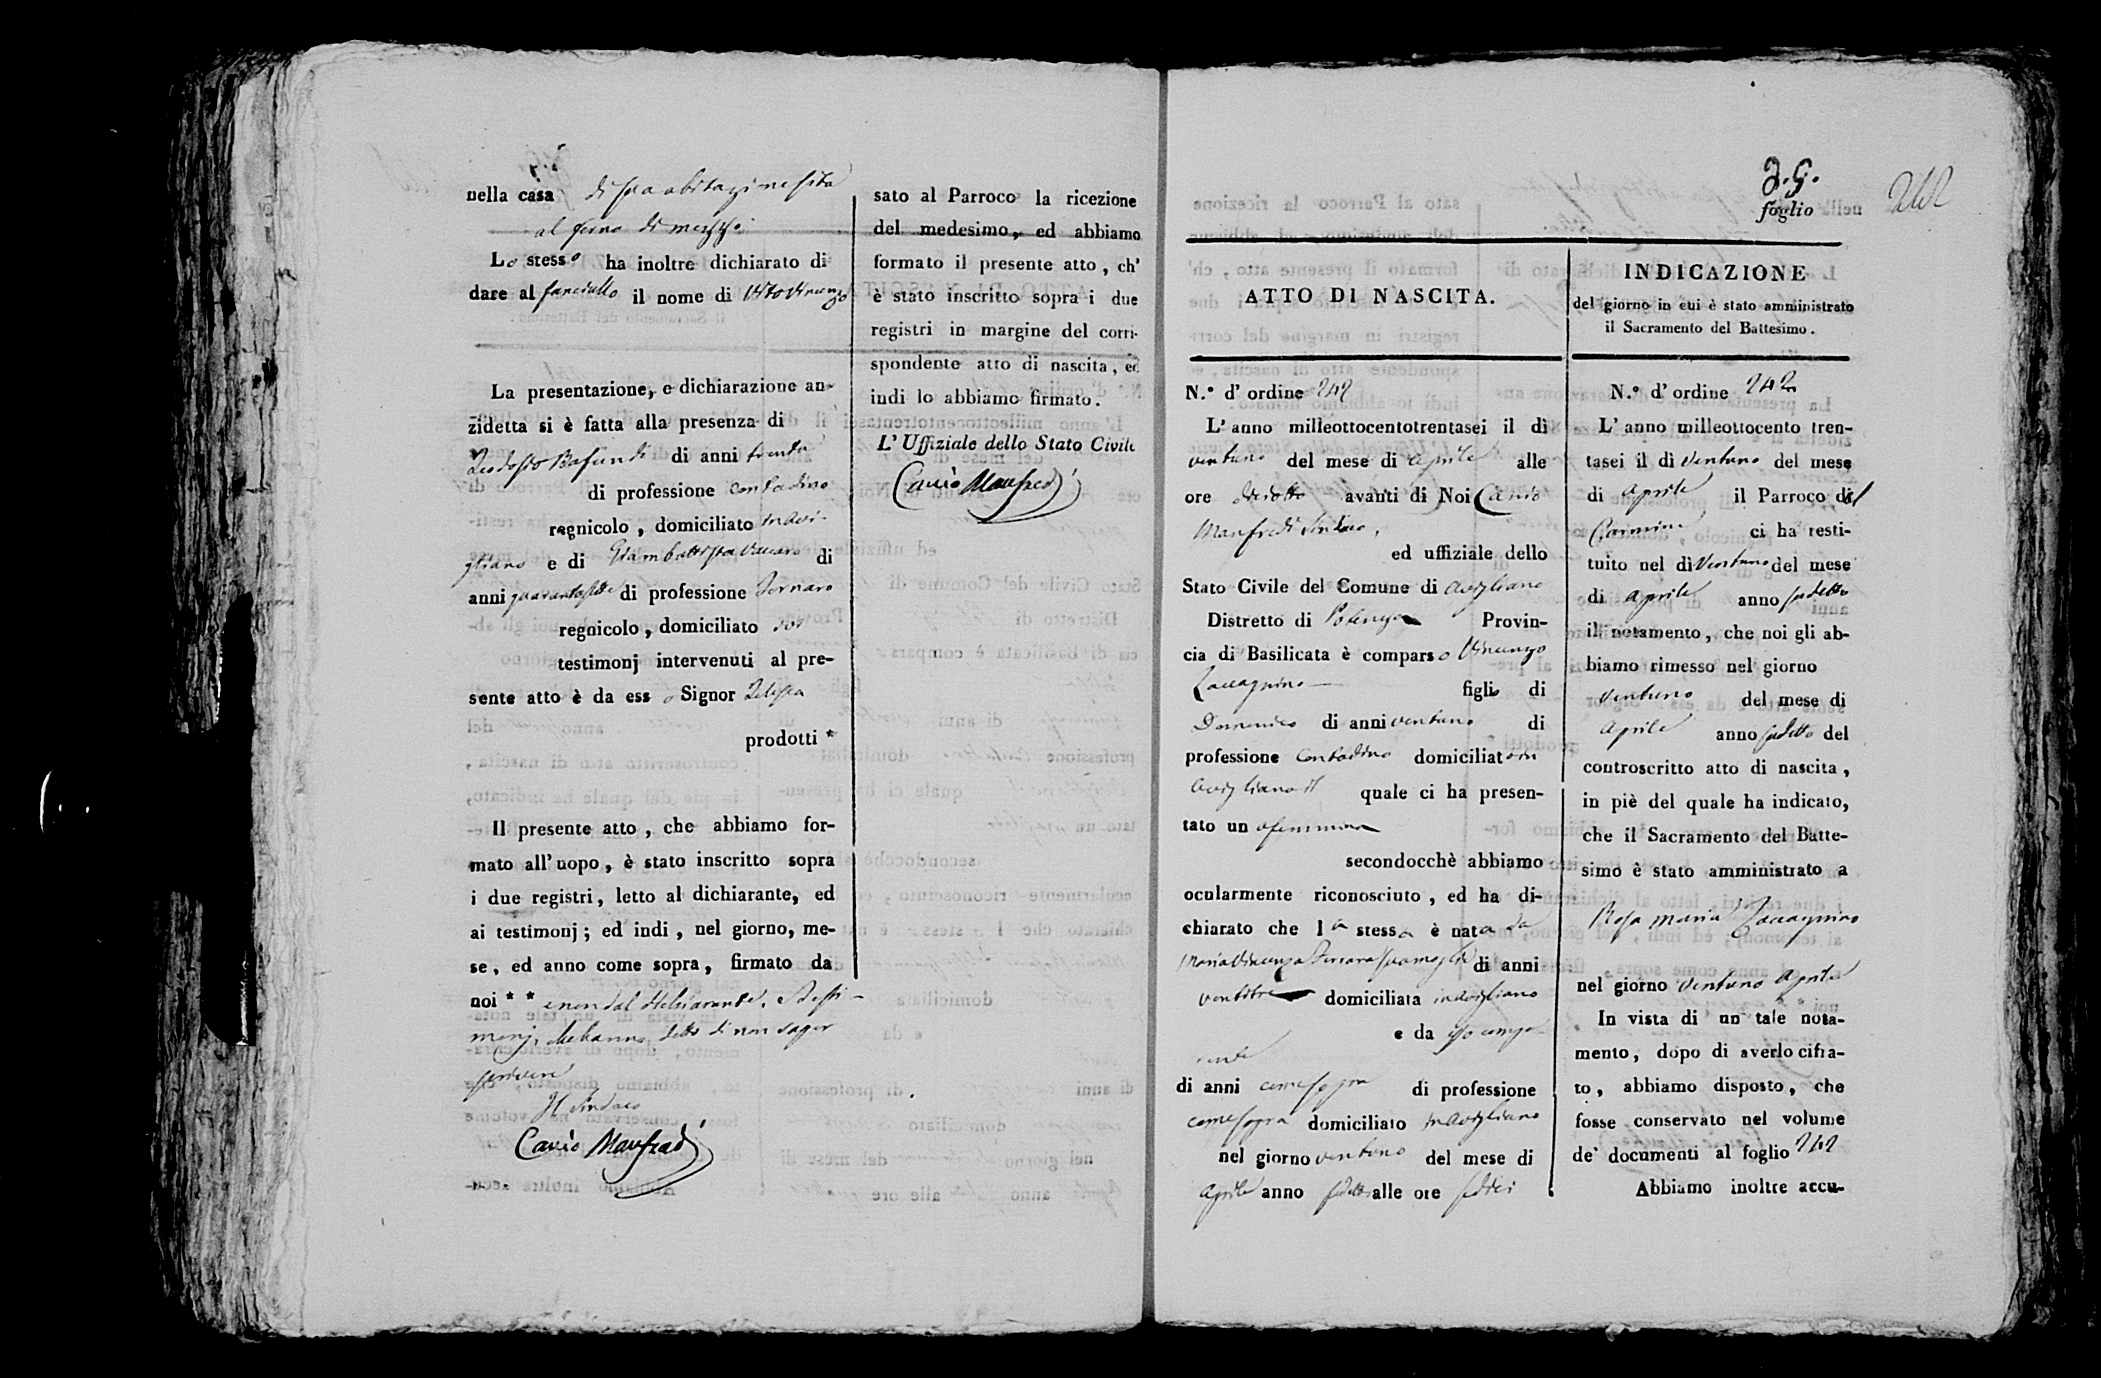 nella casa di sua abitazione sita
al forno di mezzo
Lo stesso ha inoltre dichiarato di
dare al fanciullo il nome di Vito Vincenzo
La presentazione, e dichiarazione an-
zidetta si è fatta alla presenza di
Teodosio Bafundi di anni trenta
di professione contadino
regnicolo, domiciliato in Avi-
gliano e di Giambattista Vaccaro di
anni quarantasette di professione Fornaro
regnicolo, domiciliato ivi
testimonj intervenuti al pre-
sente atto è da esso Signor
prodotti *
Il presente atto, che abbiamo for-
mato all' uopo, è stato inscritto sopra
i due registri, letto al dichiarante, ed
ai testimonj; ed indi, nel giorno, me-
se, ed anno come sopra, firmato da
noi * * e non dal dichiarante, e testi-
monj, che hanno detto di non saper
scrivere
Il Sindaco
Canio Manfredi
sato al Parroco la ricezione
del medesimo, ed abbiamo
formato il presente atto, ch'
è stato inscritto sopra i due
registri in margine del corri-
spondente atto di nascita, ed
indi lo abbiamo firmato.
L' Uffiziale dello Stato Civile
Canio Manfredi
foglio 242
ATTO DI NASCITA.
N.º d' ordine 242
L' anno milleottocentotrentasei il dì
ventuno del mese di Aprile alle
ore dieciotto avanti di Noi Canio
Manfredi Sindaco,
ed uffiziale dello
Stato Civile del Comune di Avigliano
Distretto di Potenza Provin-
cia di Basilicata è comparso Vincenzo
Zaccagnino figlio di
Domenico di anni ventuno di
professione contadino domiciliato in
Avigliano il quale ci ha presen-
tato una femmina
secondocchè abbiamo
ocularmente riconosciuto, ed ha di-
chiarato che la stessa è nata da
Maria Vincenza Ferrara sua moglie di anni
ventitre domiciliata in Avigliano
e da esso compa-
rente
di anni come sopra di professione
come sopra domiciliato in Avigliano
nel giorno ventuno del mese di
Aprile anno sudetto alle ore sedici
INDICAZIONE
del giorno in cui è stato amministrato
il Sacramento del Battesimo.
N.º d' ordine 242
L' anno milleottocento tren-
tasei il dì ventuno del mese
di Aprile il Parroco del
Carmine ci ha resti-
tuito nel dì Ventuno del mese
di Aprile anno sudetto
il notamento, che noi gli ab-
biamo rimesso nel giorno
Ventuno del mese di
Aprile anno sudetto del
controscritto atto di nascita,
in piè del quale ha indicato,
che il Sacramento del Batte-
simo è stato amministrato a
Rosa Maria Zaccagnino
nel giorno Ventuno Aprile
In vista di un tale nota-
mento, dopo di averlo cifra-
to, abbiamo disposto, che
fosse conservato nel volume
de' documenti al foglio 242
Abbiamo inoltre accu-